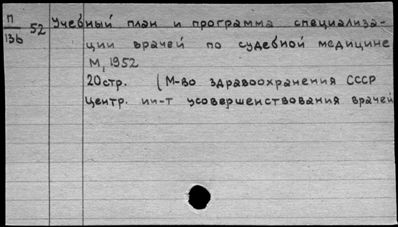 П
136
52
Учебный план и программа специализа-
ции врачей по судебной медицине
М, 1952
20стр. (М-во здравоохранения СССР
Центр. ин-т усовершенствования врачей